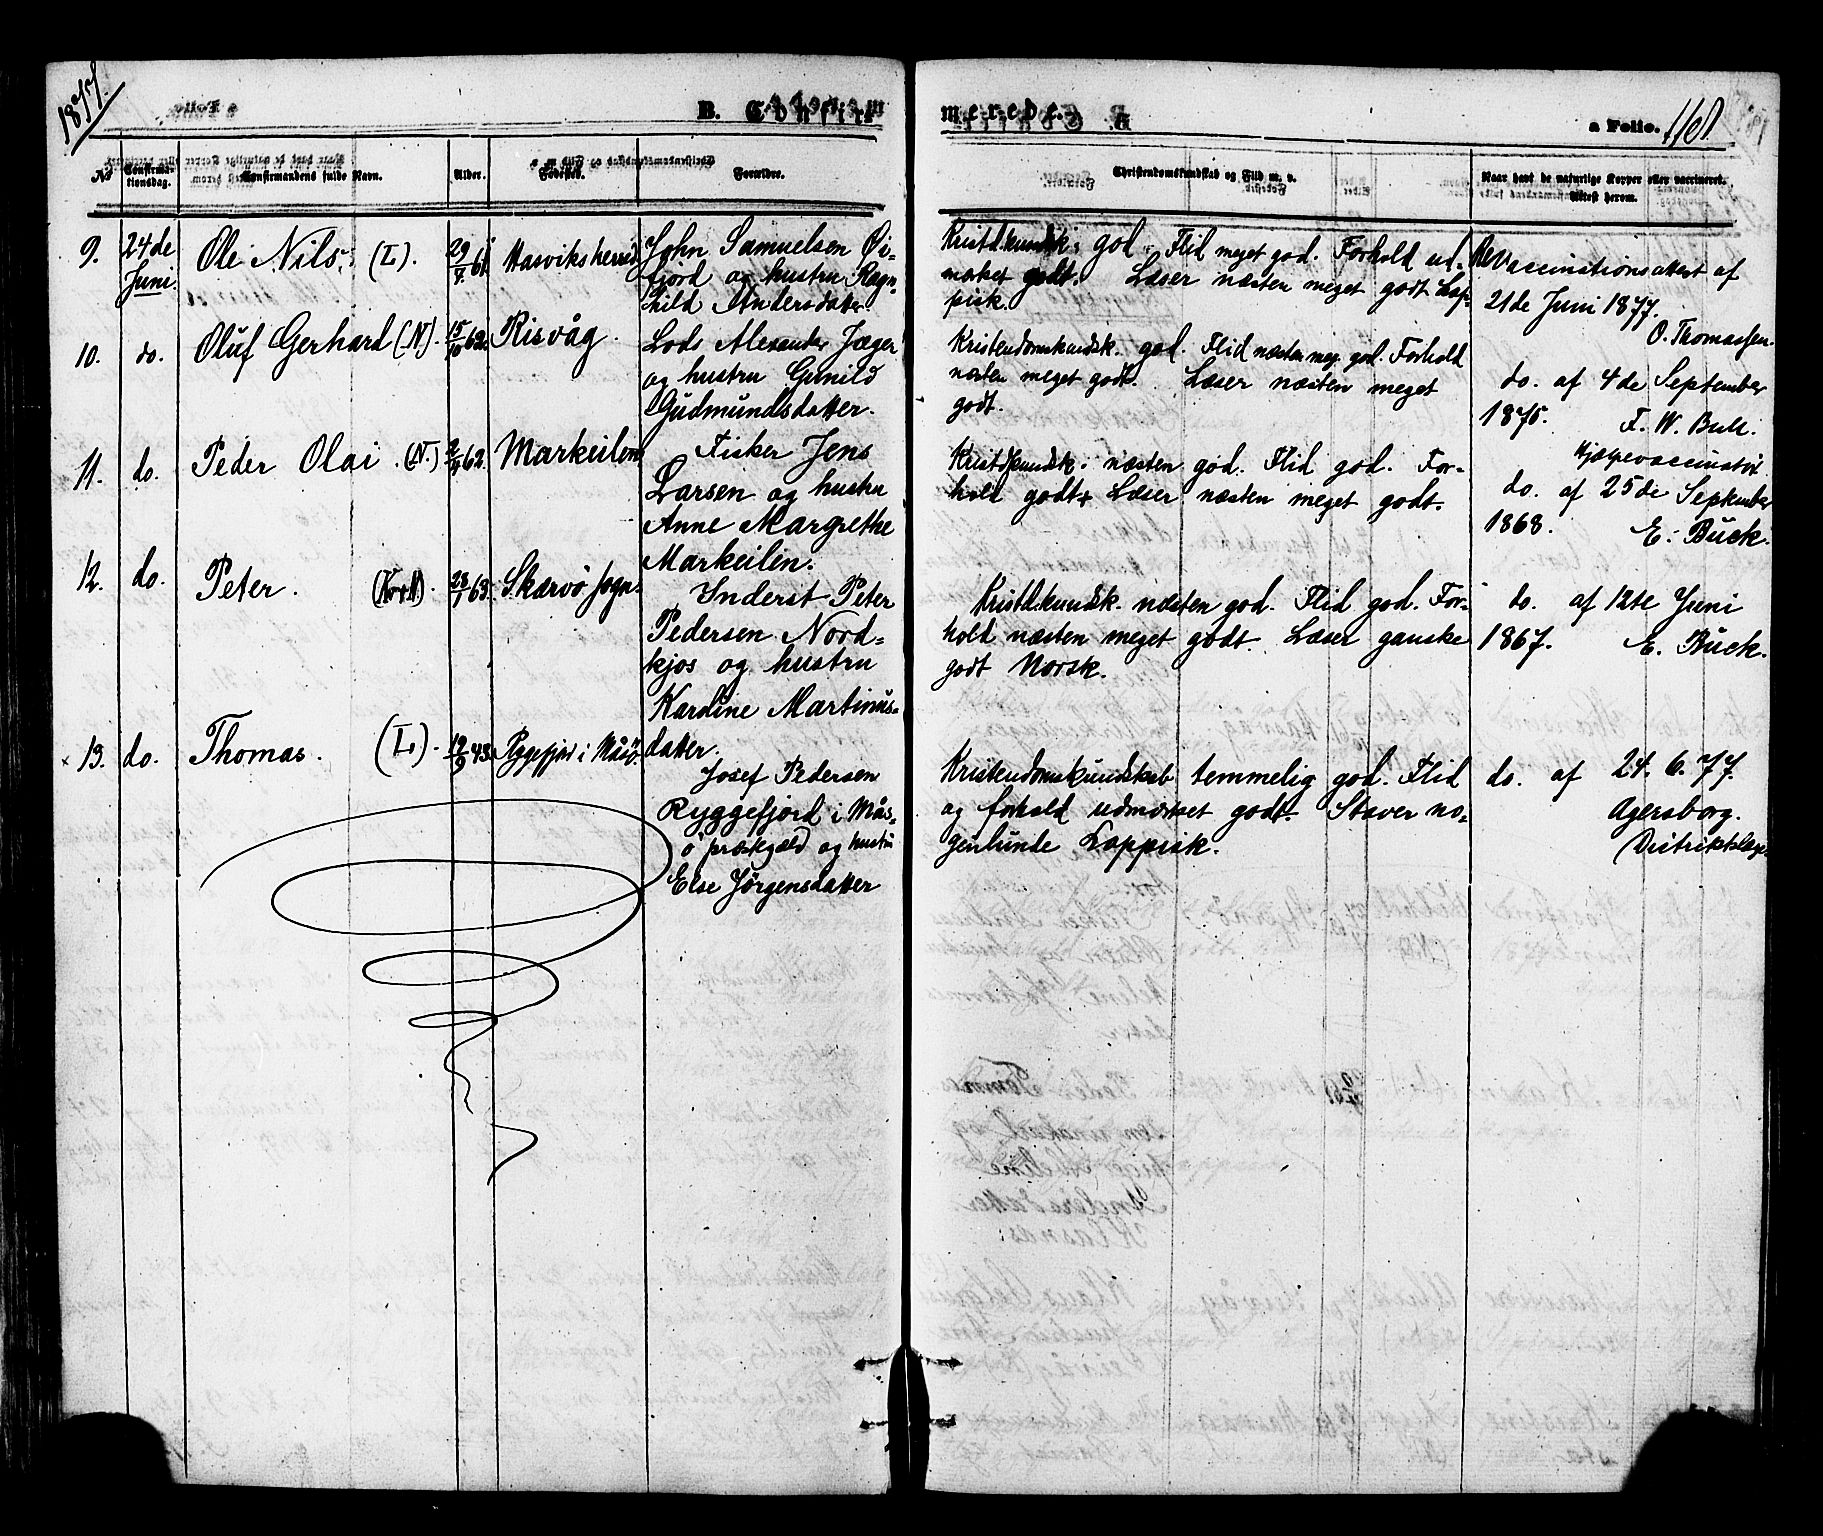 1877.
B. Confirmerede.
a Folio. 118
No Confirmationsdag. Confirmandens fulde Navn. Alder. Fødested. Forældre. Christendomskundskab og Flid m. v. Naar havt de naturlige Kopper eller vaccineret. Attest herom.
9. 24de Juni. Ole Nils. (L). 61 Hasviksherred
John Samuelsen Øi-
fjord og hustru Ragn-
hild Andersdatter.
Kristd.kundsk. god. Flid meget god. Forhold ud-
mærket godt. Læser næsten meget godt Lap-
pisk.
Revaccinationsattest af
21de Juni 1877.
O. Thomassen.
10. do. Oluf Gerhard (N). 15/10 62. Risvåg.
Lods Alexander Jæger
og hustru Gunild
Gudmundsdatter.
Kristendomskundsk. god. Flid næsten meg. god. Forhold
næsten meget godt. Læser næsten meget
godt.
do. af 4de September
1875. F. W. Bull.
Hjælpevaccinatør
11. do. Peder Olai. (N.) 62. Markeilen
Fisker Jens
Larsen og hustru
Anne Margrethe
Markeilen.
Kristd.kundsk. næsten god. Flid god. For-
hold godt. Læser næsten meget godt.
do. af 25de September
1868. E. Buck.
12. do. Peter. 63. Skærvø Sogn.
Inderst Peter
Pedersen Nord-
kjos og hustru
Karoline Martinus-
datter.
Kristd.kundsk. næsten god. Flid god. For-
hold næsten meget godt. Læser ganske
godt Norsk.
do. af 12te Juni
1867. E. Buck.
× 13. do. Thomas. (L). 43. Ryggefjord i Måsö.
Josef Pedersen
Ryggefjord i Mås-
ö præstegæld og hustru
Else Jörgensdatter
Kristendomskundskab temmelig god. Flid
og forhold udmærket godt. Staver no-
genlunde Lappisk.
do. af 24. 6. 77.
Agersborg.
Distriktslæge.